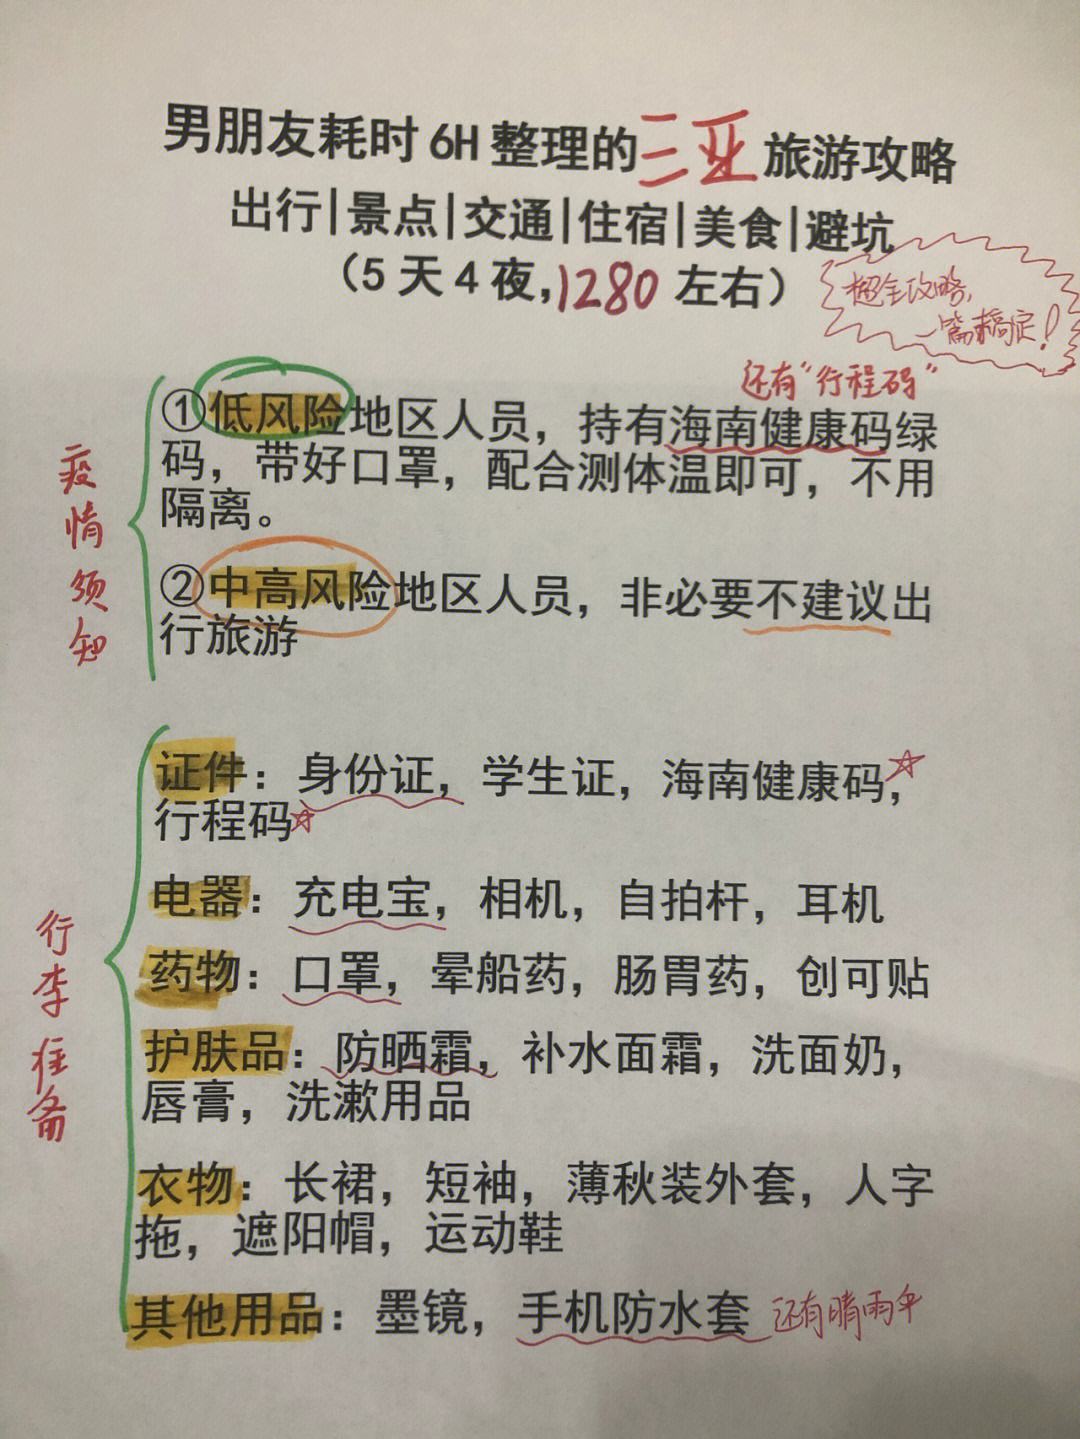 男朋友耗时6H整理的三亚旅游攻略
出行|景点|交通|住宿|美食|避坑
（5天4夜，1280左右）
超全攻略，
一篇搞定！
还有“行程码”
疫情须知
①低风险地区人员，持有海南健康码绿
码，带好口罩，配合测体温即可，不用
隔离。
②中高风险地区人员，非必要不建议出
行旅游
行李准备
证件：身份证，学生证，海南健康码，
行程码
电器：充电宝，相机，自拍杆，耳机
药物：口罩，晕船药，肠胃药，创可贴
护肤品：防晒霜，补水面霜，洗面奶，
唇膏，洗漱用品
衣物：长裙，短袖，薄秋装外套，人字
拖，遮阳帽，运动鞋
其他用品：墨镜，手机防水套 还有晴雨伞